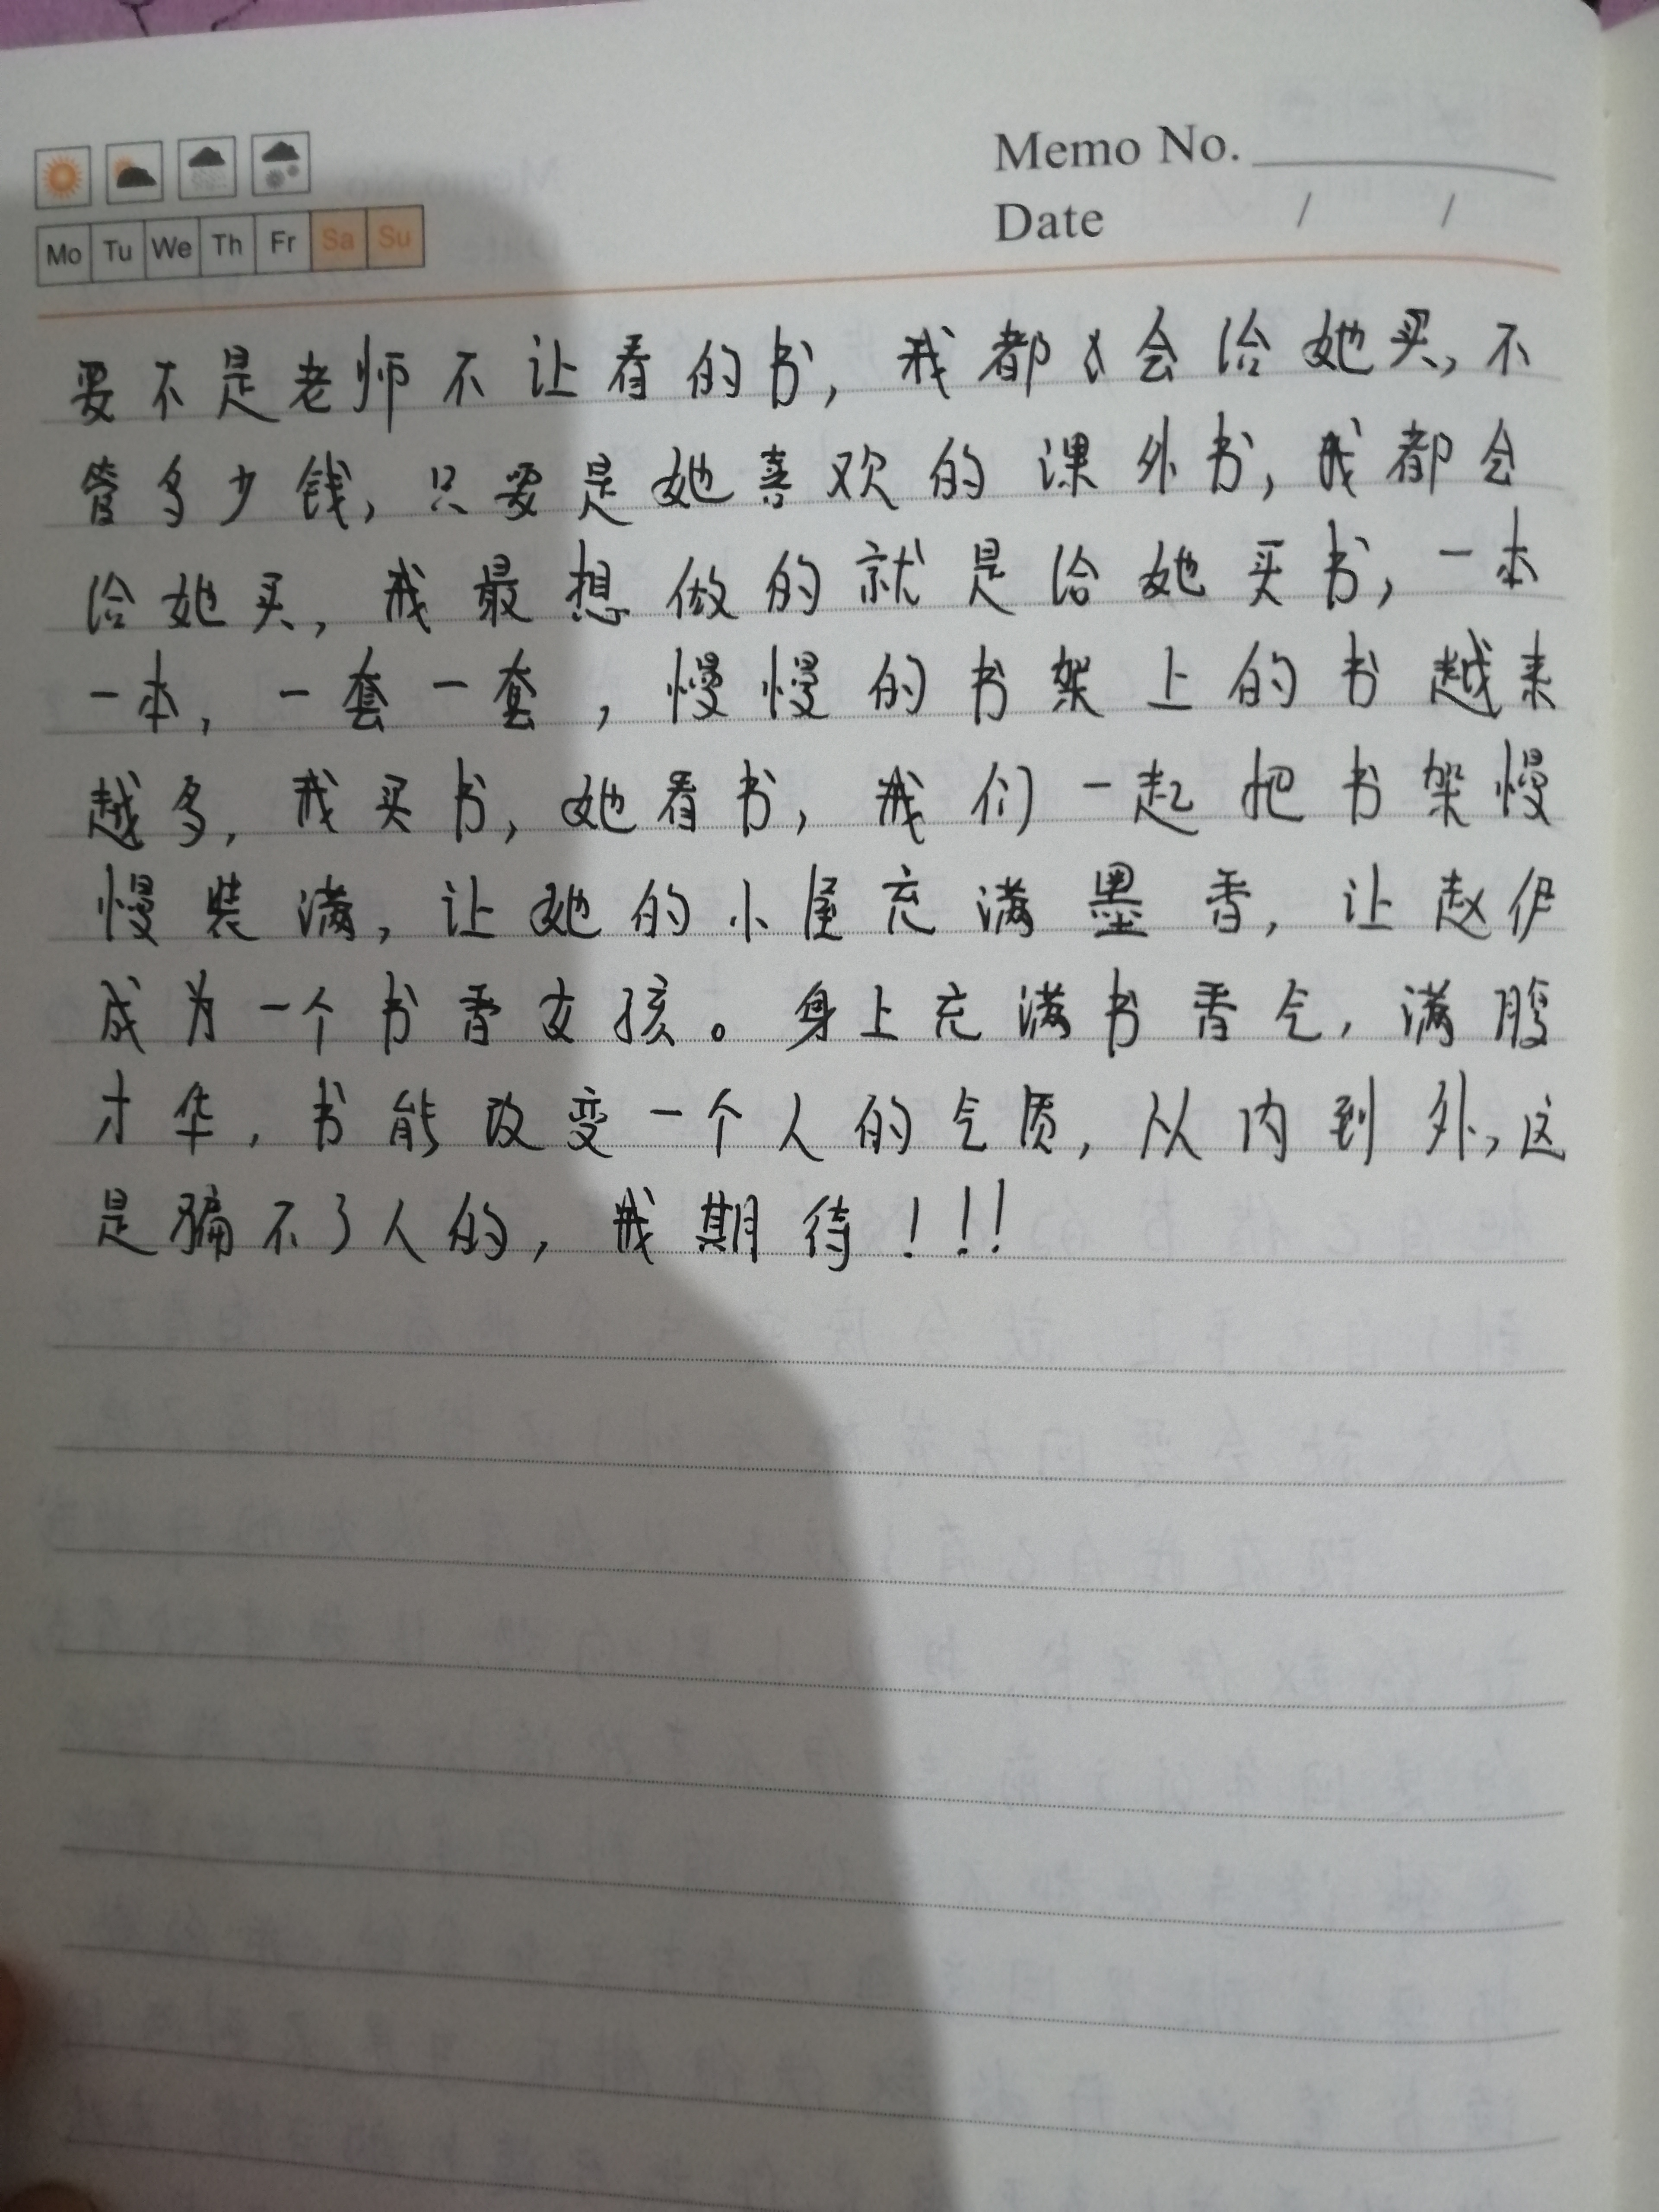 Memo No.
Date / /
Mo Tu We Th Fr Sa Su
要不是老师不让看的书，我都会给她买，不
管多少钱，只要是她喜欢的课外书，我都会
给她买，我最想做的就是给她买书，一本
一本，一套一套，慢慢的书架上的书越来
越多，我买书，她看书，我们一起把书架慢
慢装满，让她的小屋充满墨香，让赵伊
成为一个书香女孩。身上充满书香气，满腹
才华，书能改变一个人的气质，从内到外，这
是骗不了人的，我期待！！！